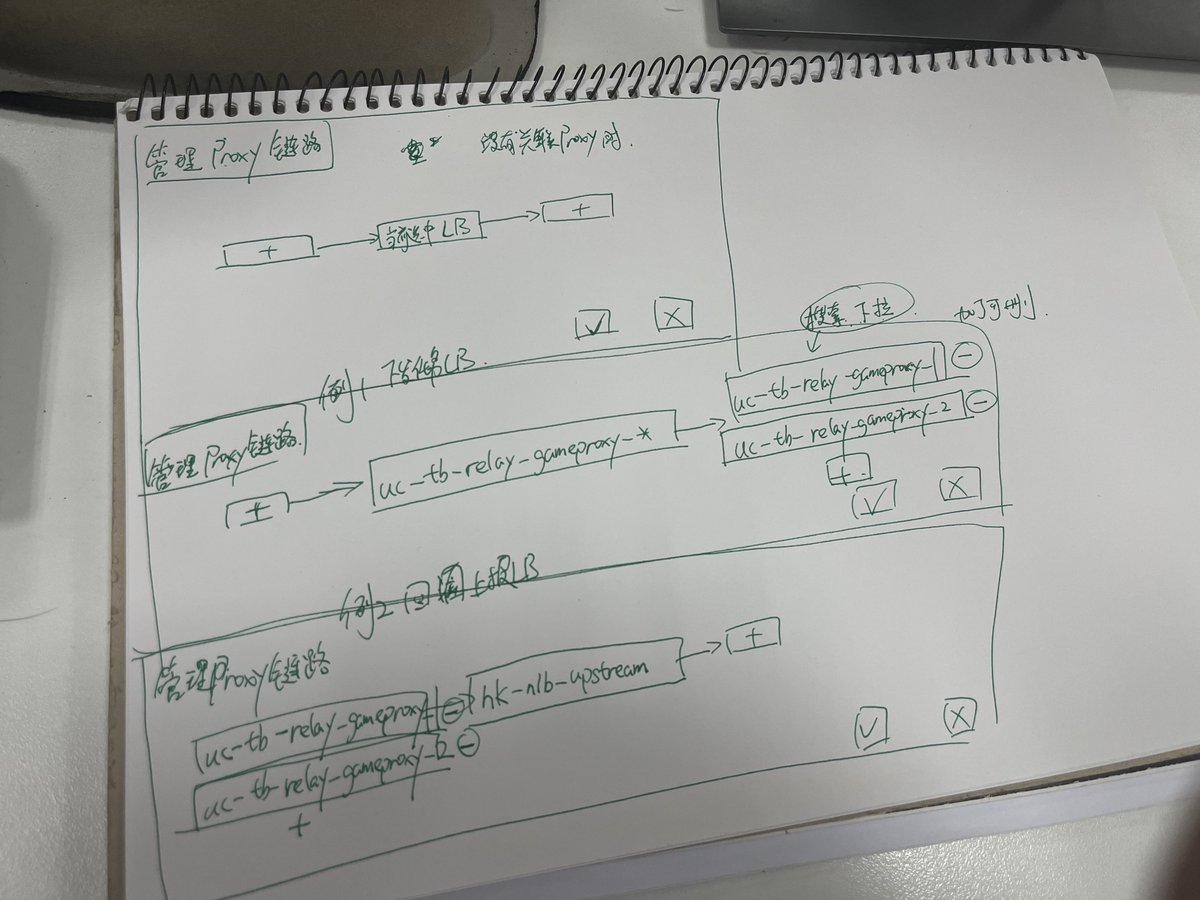 管理Proxy链路
没有关联Proxy时.
+ 当前选中LB +
√ X
搜索、下拉. 加了可删.
例1, LB.
管理Proxy链路
+ uc-tb-relay-gameproxy-* uc-tb-relay-gameproxy-1 -
uc-tb-relay-gameproxy-2 -
+
√ X
例2 回源上报LB
管理Proxy链路
uc-tb-relay-gameproxy-1 - hk-nlb-upstream +
uc-tb-relay-gameproxy-2 -
+
√ X